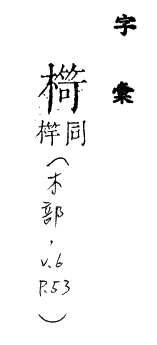 字彙
同
(木部, v.6 P.53)